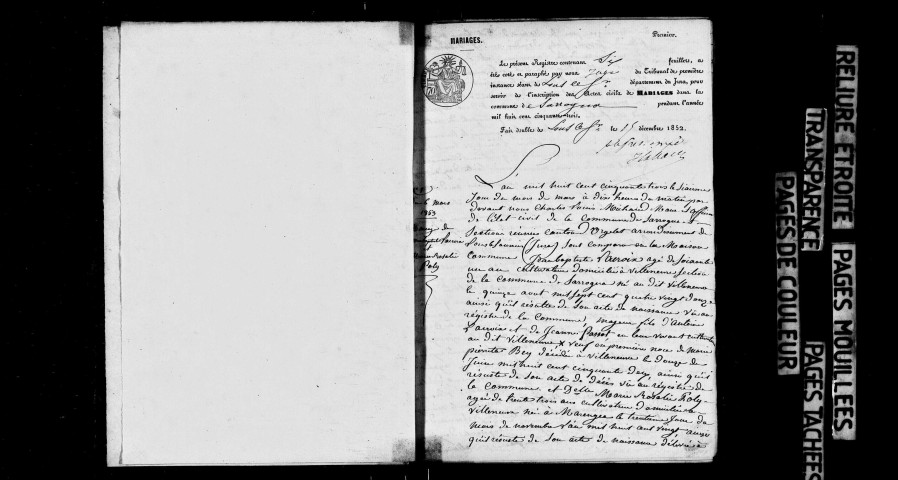 MARIAGES.
Premier.
Le présent Registre contenant Six feuillets, a
été coté et paraphé par nous Juge du Tribunal de première
instance séant de Lons le Sr département du Jura, pour
servir de l'inscription des Actes civils de MARIAGES dans la
commune de Sarrogna pendant l'année
mil huit cent cinquante-trois.
Fait double de Lons le Sr le 15 décembre 1852.
L'an mil huit cent cinquante trois le sixieme
Jour du mois de mars à dix heures du matin par
devant nous Charles Louis Maire officier
de l'Etat-civil de la Commune de Sarrogna
Section réunies canton d'Orgelet arrondissement de
Lons-le-Saunier (Jura) sont comparu en la Maison
Commune Jean baptiste Vauvoix agé de soixante
un ans cultivateur domicilié à Villeneuve section
de la commune de Sarrogna né au dit Villeneuve
le quinze aout mil sept cent quatre vingt douze
ainsi qu'il résulte de son acte de naissance vu au
régistre de la Commune, majeur fils d'
et de Jeanne en leur vivant
au dit Villeneuve veuf en première noce de Marie
pierrette Bey décédée à Villeneuve le douze de
Juin mil huit cent cinquante deux, ainsi qu'il
résulte de son acte de décès vu au régistre de
la Commune et Delle Marie Rosalie Poly
agée de trente trois ans cultivateur domiciliée à
Villeneuve née à Marangea le trentieme Jour du
mois de novembre l'an mil huit cent vingt
qu'il résulte de son acte de naissance délivré à
mars
1853
de
et
Rosalie
Poly
RELIURE ETROITE
TRANSPARENCE
PAGES DE COULEUR
PAGES MOUILLEES
PAGES TACHEES